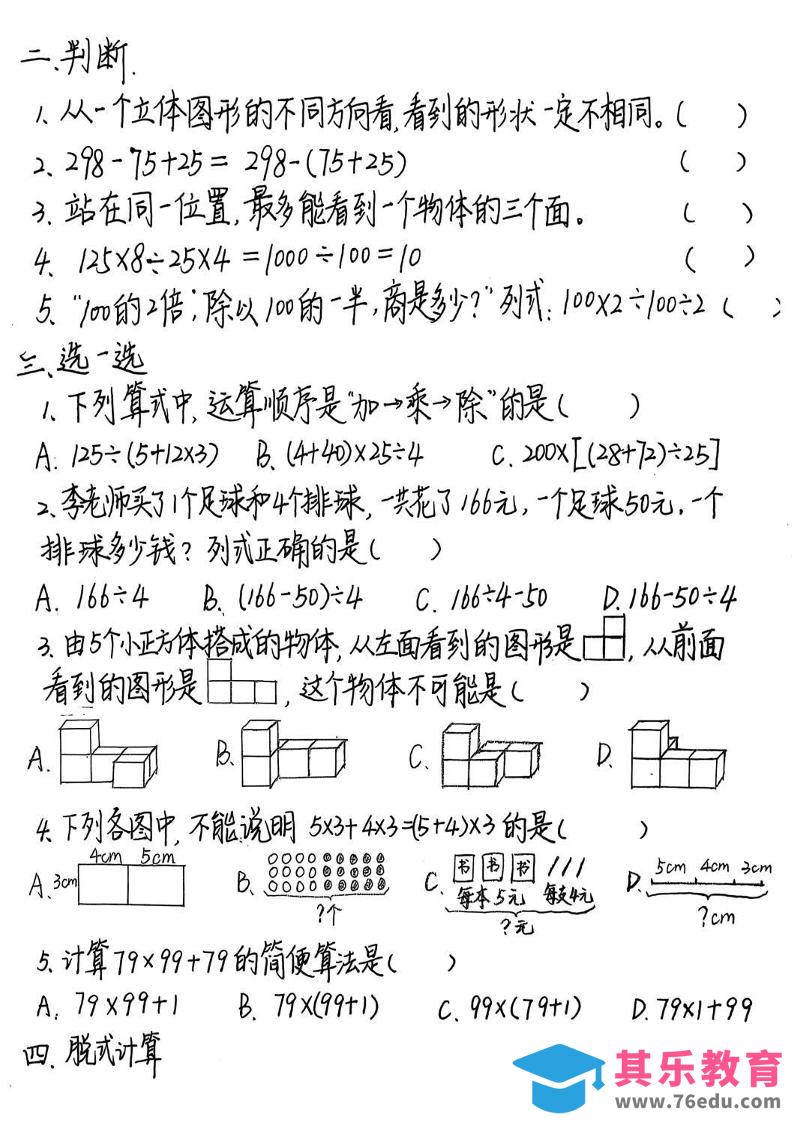 二、判断.
1. 从一个立体图形的不同方向看,看到的形状一定不相同。(  )
2. 298-75+25= 298-(75+25) (  )
3. 站在同一位置,最多能看到一个物体的三个面。 (  )
4. 125×8÷25×4=1000÷100=10 (  )
5. "100的2倍,除以100的一半,商是多少?"列式: 100×2÷100÷2 (  )
三、选一选
1. 下列算式中,运算顺序是"加→乘→除"的是(  )
A. 125÷(5+12×3) B. (4+40)×25÷4 C. 200×[(28+72)÷25]
2. 李老师买了1个足球和4个排球,一共花了166元,一个足球50元,一个
排球多少钱?列式正确的是(  )
A. 166÷4 B. (166-50)÷4 C. 166÷4-50 D. 166-50÷4
3. 由5个小正方体搭成的物体,从左面看到的图形是 ,从前面
看到的图形是 ,这个物体不可能是(  )
A. B. C. D.
4. 下列各图中,不能说明 5×3+4×3=(5+4)×3 的是(  )
4cm 5cm
A. 3cm B. ?个 C. 书 书 书 每本5元 每支4元 ?元 D. 5cm 4cm 3cm ?cm
5. 计算79×99+79的简便算法是(  )
A. 79×99+1 B. 79×(99+1) C. 99×(79+1) D. 79×1+99
四. 脱式计算
其乐教育
www.76edu.com